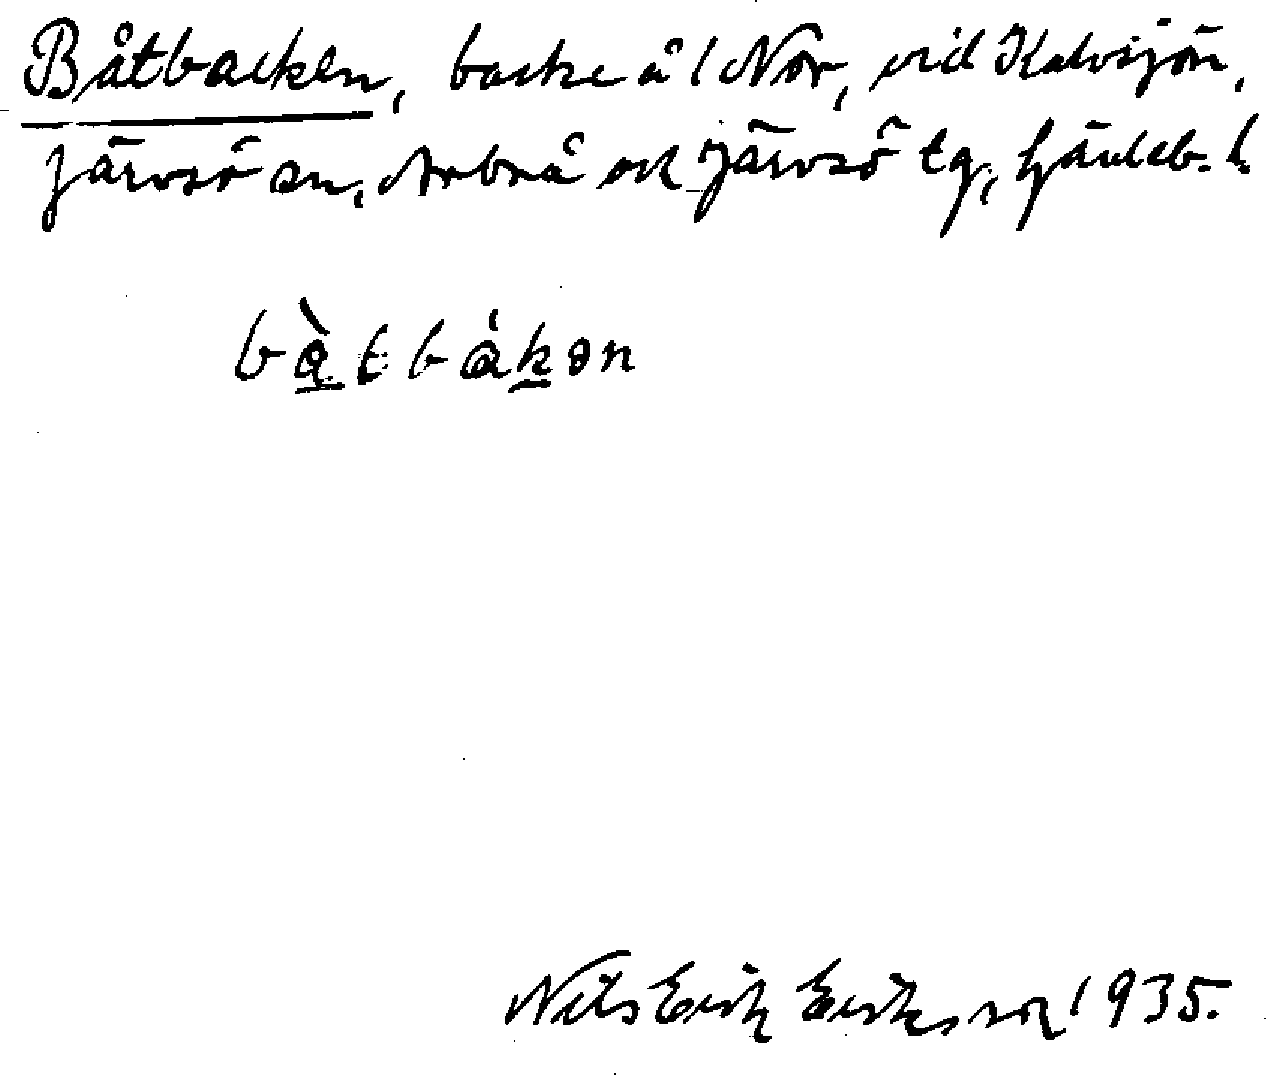 Båtbacken, backe å 1 Nor, vid Kalvsjön,
Järvsö sn, Arbrå och Järvsö tg, Gävleb. l.
bàtbákən
Nils Erik Eriksson 1935.